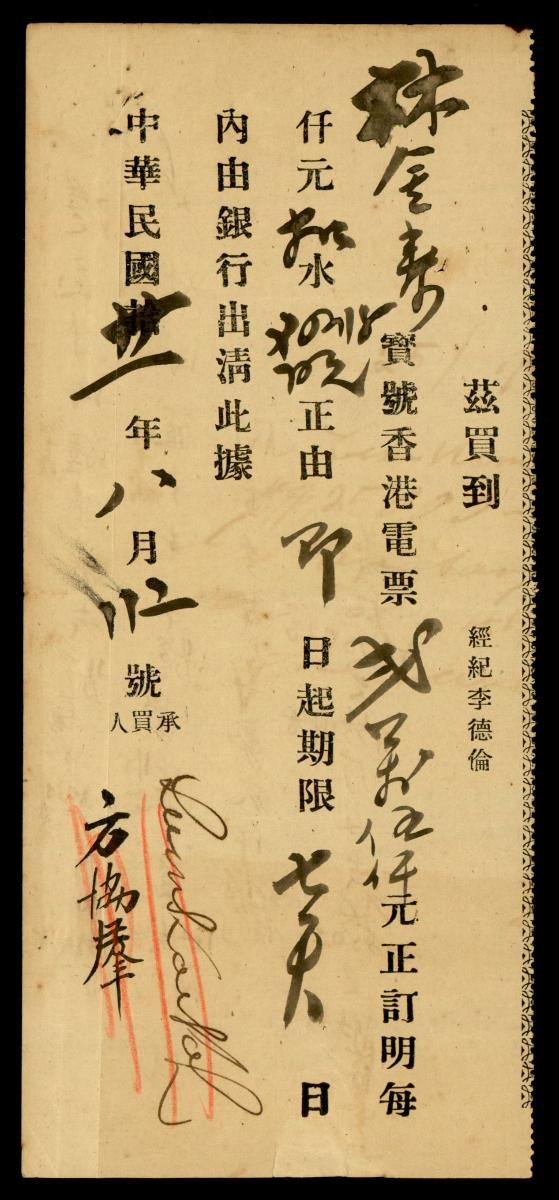 茲買到
經紀李德倫
林金壽寶號香港電票弍萬伍仟元正訂明每
仟元水正由即日起期限七天日
內由銀行出清此據
中華民國廿一年八月號
承買人
方協